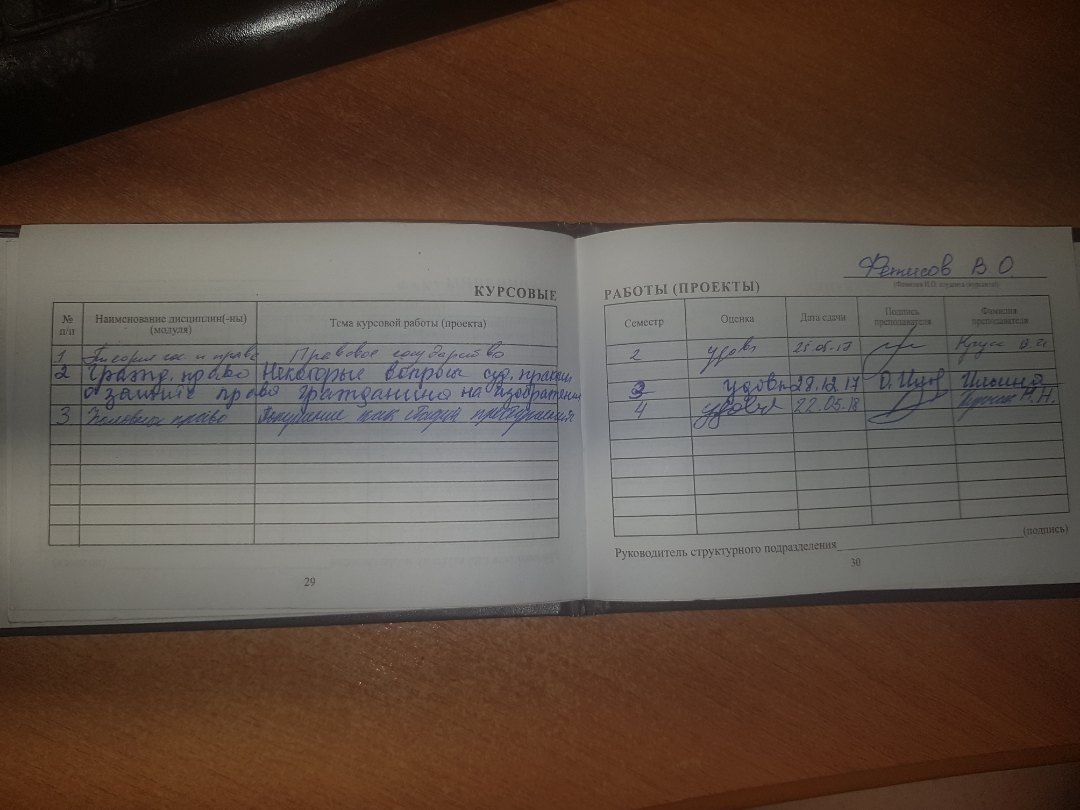 Фетисов В.О
(Фамилия И.О. студента (курсанта))
КУРСОВЫЕ РАБОТЫ (ПРОЕКТЫ)
№ п/п Наименование дисциплин(-ны) (модуля) Тема курсовой работы (проекта) Семестр Оценка Дата сдачи Подпись преподавателя Фамилия преподавателя
1 Теория гос. и права Правовое государство 2 удовл 25.05.17
2 Гражд. право Некоторые вопросы суд. практики
о защите права гражданина на изображение 3 удовл 28.12.17 Ильина
3 право как 4 удовл 22.05.18 М.Н.
Руководитель структурного подразделения (подпись)
29
30